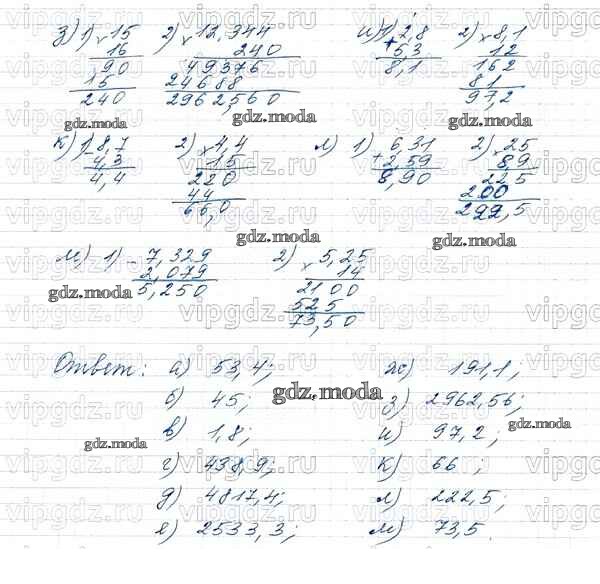 з) 1) × 15 2) × 12,344 и) 1) + 2,8 2) × 8,1
16 240 5,3 12
90 49376 8,1 162
15 24688 81
240 2962,560 97,2
gdz.moda gdz.moda gdz.moda
к) 1) - 8,7 2) × 4,4 л) 1) + 6,31 2) × 25
4,3 15 2,59 8,9
4,4 220 8,90 225
44 200
66,0 222,5
gdz.moda gdz.moda gdz.moda
м) 1) - 7,329 2) × 5,25
2,079 14
5,250 2100
525
73,50
gdz.moda gdz.moda
Ответ: а) 53,4; ж) 191,1;
б) 45; з) 2962,56;
в) 1,8; и) 97,2;
г) 438,9; к) 66;
д) 4817,4; л) 222,5;
е) 2533,3; м) 73,5.
gdz.moda gdz.moda gdz.moda
vipgdz.ru